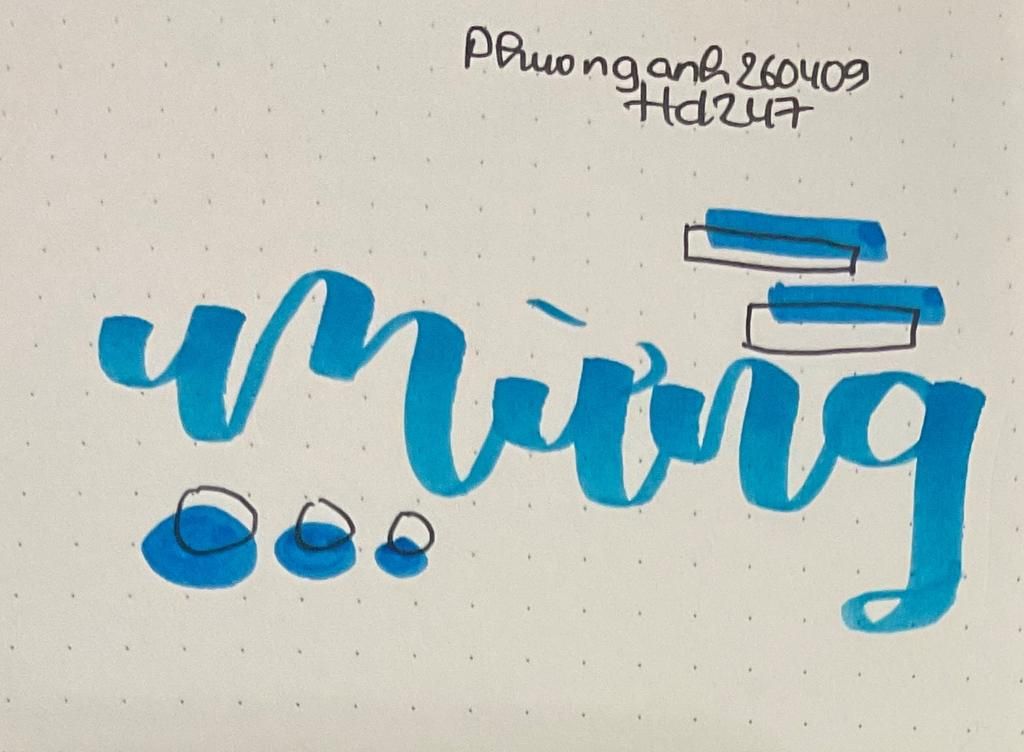 Phuonganh260409
Hd247
mừng